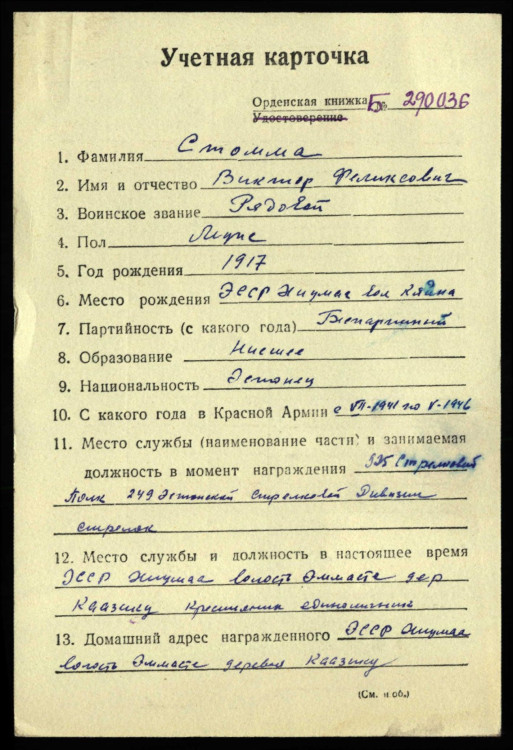 Учетная карточка
Орденская книжка Б № 290036
Удостоверение
1. Фамилия Стомма
2. Имя и отчество Виктор Феликсович
3. Воинское звание Рядовой
4. Пол Муж
5. Год рождения 1917
6. Место рождения ЭССР Хиумаа вол Кяйна
7. Партийность (с какого года) Безпартийный
8. Образование Нисшее
9. Национальность Эстонец
10. С какого года в Красной Армии с VII-1941 по V-1946
11. Место службы (наименование части) и занимаемая
должность в момент награждения 925 Стрелковый
Полк 249 Эстонской стрелковой Дивизии
стрелок
12. Место службы и должность в настоящее время
ЭССР Хиумаа волость Эммасте дер
Каазику крестьянин единоличник
13. Домашний адрес награжденного ЭССР Хиумаа
волость Эммасте деревня Каазику
(См. н об.)